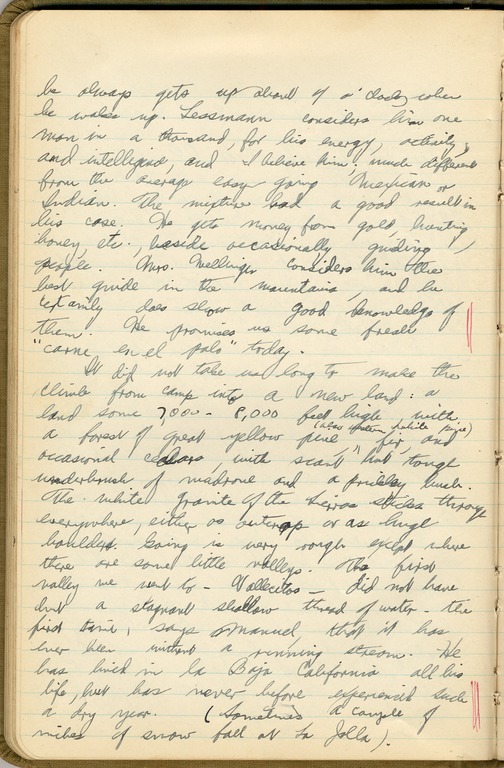 he always gets up about 4 o'clock, when
he wakes up. Lessmann considers him one
man in a thousand, for his energy, activity,
and intelligence, and I believe him: much different
from the average easy going Mexican or
Indian. The mixture had a good result in
his case. He gets money from gold, hunting,
honey, etc., beside occasionally guiding
people. Mrs. Mellinger considers him the
best guide in the mountains, and he
certainly does show a good knowledge of
them. He promises us some fresh
"carne en el palo" today.
It did not take us long to make the
climb from camp into a new land: a
land some 7,000 - 8,000 feet high with
(also white pine)
a forest of great yellow pine, fir, and
occasional cedars, with scant but tough
underbrush of madrone and a prickly bush.
The white granite of the sierras sticks through
everywhere, either as outcrop or as huge
boulders. Going is very rough except where
there are some little valleys. The first
valley we went to - Vallecitos - did not have
but a stagnant shallow thread of water - the
first time, says Manuel, that it has
ever been without a running stream. He
has lived in la Baja California all his
life, but has never before experienced such
a dry year. (Sometimes a couple of
miles of snow fall at La Jolla).